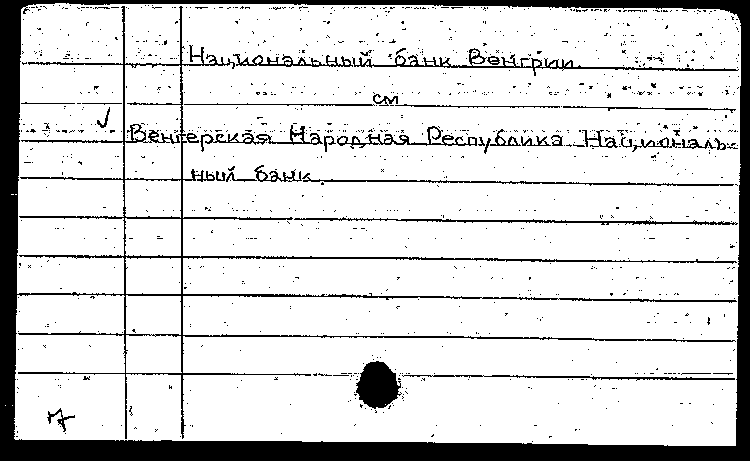 Национальный банк Венгрии.
см
✓ Венгерская Народная Республика Националь-
ный банк.